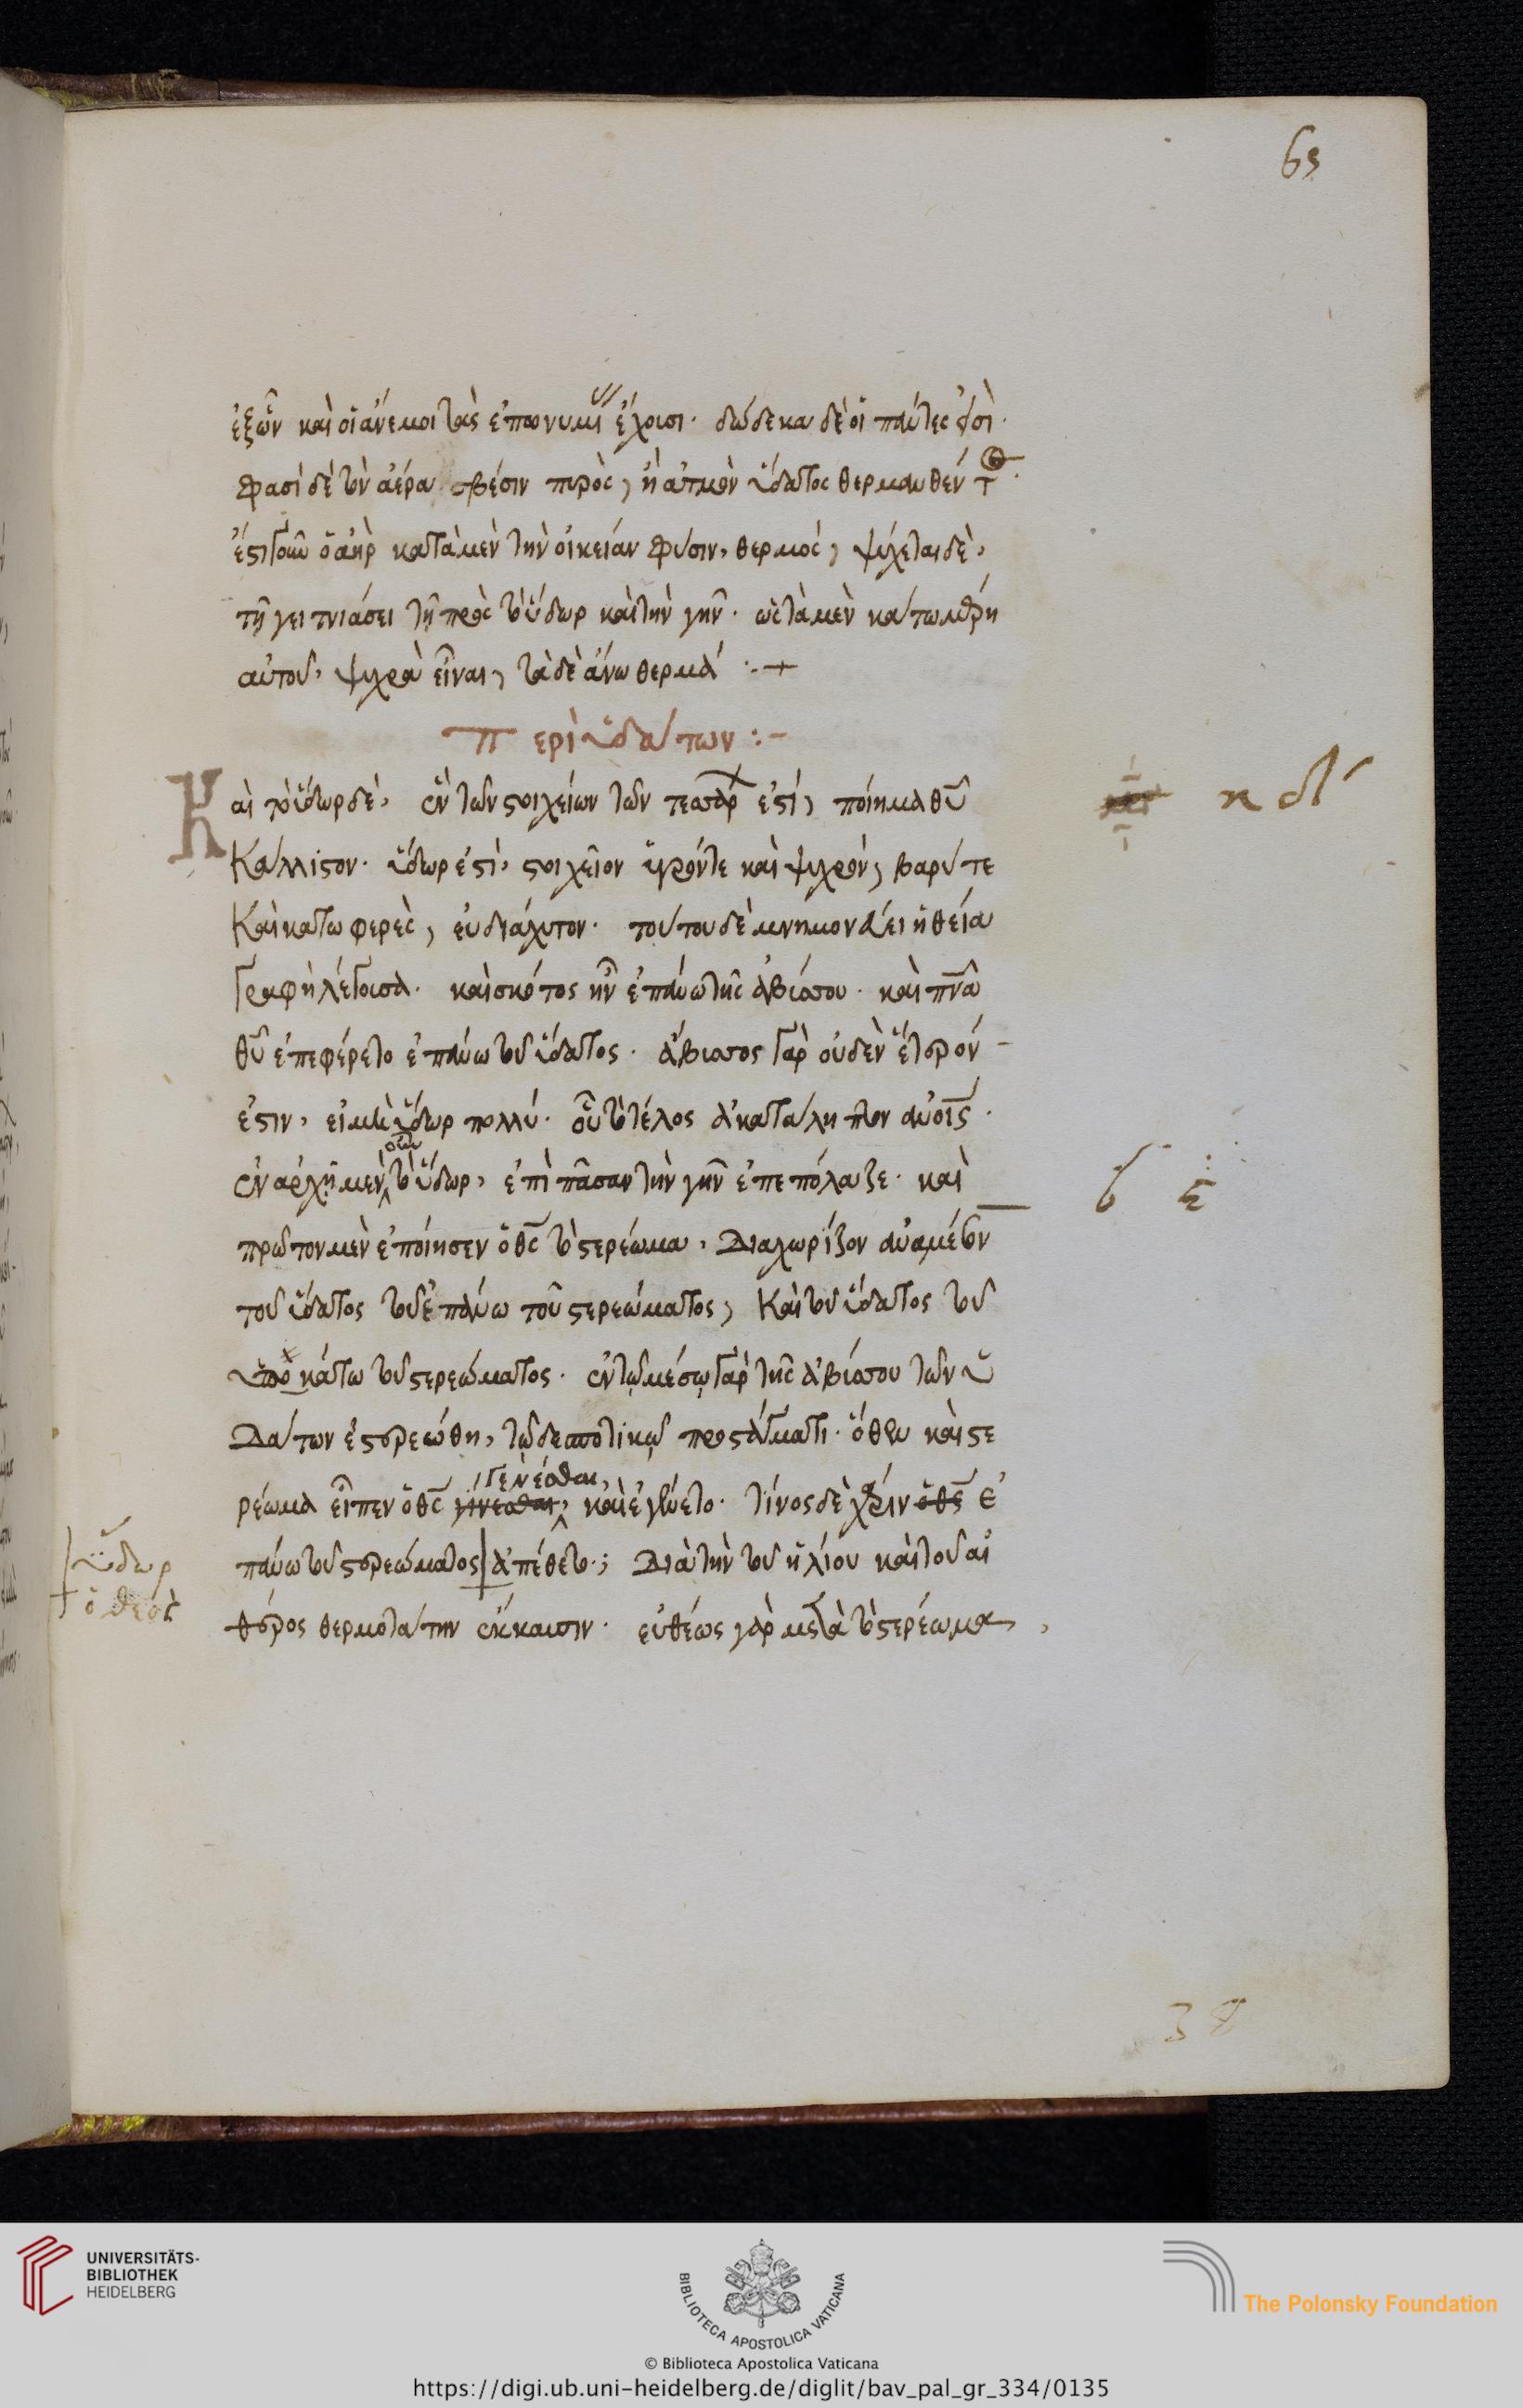 65
ἐξ ὧν καὶ οἱ ἄνεμοι τὰς ἐπωνυμί ἔχουσι. δώδεκα δὲ οἱ πάντες εἰσὶ.
φασὶ δὲ τὸν ἀέρα σβέσιν πυρὸς, ἢ ἀτμὸν ὕδατος θερμανθέντ
ἔστι γοῦν ὁ ἀὴρ κατὰ μὲν τὴν οἰκείαν φύσιν, θερμὸς, ψύχεται δὲ,
τῇ γειτνιάσει τῇ πρὸς τὸ ὕδωρ καὶ τὴν γῆν. ὡς τὰ μὲν κατωμέρη
αὐτοῦ, ψυχρὰ εἶναι, τὰ δὲ ἄνω θερμά :-+
Περὶ ὑδάτων :-
Και τὸ ὕδωρ δὲ, ἓν τῶν στοιχείων τῶν τεσσάρ ἐστί, ποίημα θῦ
κδ
κάλλιστον. ὕδωρ ἐστὶ, στοιχεῖον ὑγρόν τε καὶ ψυχρὸν, βαρύ τε
καὶ κατωφερὲς, εὐδιάχυτον. τούτου δὲ μνημονεύει ἡ θεία
γραφὴ λέγουσα. καὶ σκότος ἦν ἐπάνω τῆς ἀβύσσου. καὶ πνᾶ
θῦ ἐπεφέρετο ἐπάνω τοῦ ὕδατος. ἄβυσσος γὰρ οὐδὲν ἕτερόν
ἐστιν, εἰ μὴ ὕδωρ πολύ. οὗ τὸ τέλος ἀκατάληπτον ἀνοις.
ἐν ἀρχῇ μὲν οὖν τὸ ὕδωρ, ἐπὶ πᾶσαν τὴν γῆν ἐπεπόλαζε. καὶ
πρῶτον μὲν ἐποίησεν ὁ θς τὸ στερέωμα, διαχωρίζον ἀναμέσον
τοῦ ὕδατος τοῦ ἐπάνω τοῦ στερεώματος, καὶ τοῦ ὕδατος τοῦ
ὑποκάτω τοῦ στερεώματος. ἐν τῷ μέσῳ γὰρ τῆς ἀβύσσου τῶν ὑ
δάτων ἐστερεώθη, τῷ δεσποτικῷ προστάγματι. ὅθεν καὶ στε
ρέωμα εἶπεν ὁ θς γίνεσθαι, γενέσθαι, καὶ ἐγένετο. τίνος δὲ χάριν ὁ θς ἐ
πάνω τοῦ στερεώματος ἀπέθετο; διὰ τὴν τοῦ ἡλίου καὶ τοῦ αἰ
ὕδωρ
ὁ θεὸς
θέρος θερμοτάτην ἔκκαυσιν. εὐθέως γὰρ μετὰ τὸ στερέωμα,
38
UNIVERSITÄTS-
BIBLIOTHEK
HEIDELBERG
BIBLIOTECA APOSTOLICA VATICANA
The Polonsky Foundation
© Biblioteca Apostolica Vaticana
https://digi.ub.uni-heidelberg.de/diglit/bav_pal_gr_334/0135